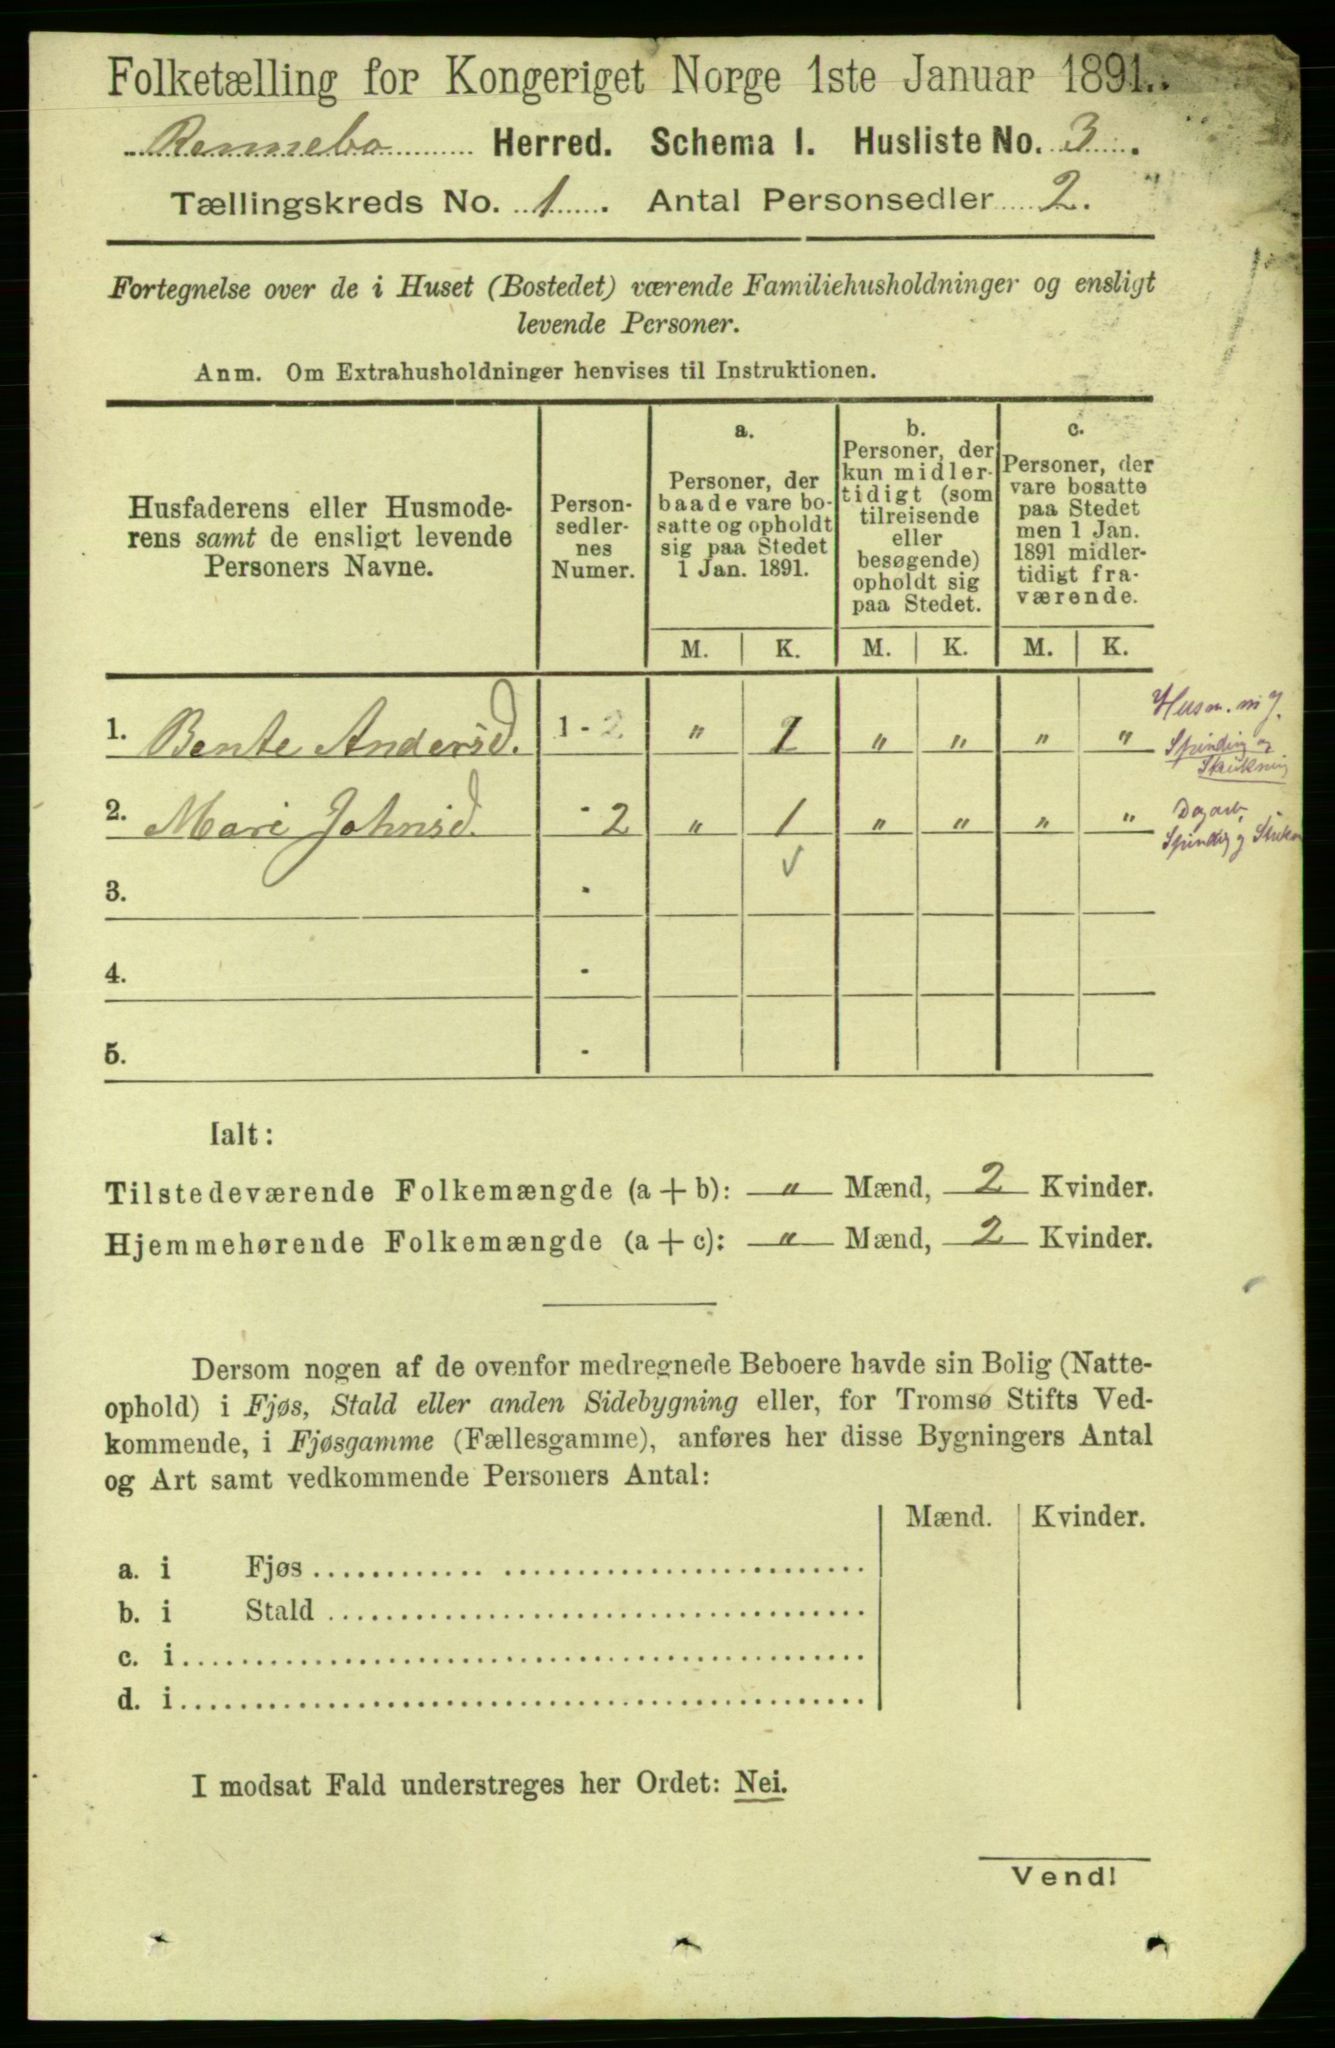 Folketælling for Kongeriget Norge 1ste Januar 1891.
Rennebo Herred. Schema I. Husliste No. 3.
Tællingskreds No. 1. Antal Personsedler 2.
Fortegnelse over de i Huset (Bostedet) værende Familiehusholdninger og ensligt
levende Personer.
Anm. Om Extrahusholdninger henvises til Instruktionen.
Husfaderens eller Husmode-
rens samt de ensligt levende
Personers Navne.
Person-
sedler-
nes
Numer.
a.
Personer, der
baade vare bo-
satte og opholdt
sig paa Stedet
1 Jan. 1891.
b.
Personer, der
kun midler-
tidigt (som
tilreisende
eller
besøgende)
opholdt sig
paa Stedet.
c.
Personer, der
vare bosatte
paa Stedet
men 1 Jan.
1891 midler-
tidigt fra-
værende.
M. K. M. K. M. K.
1. Bente Andersd. 1 - 2 " 1 " " " " Husm. m J.
Spinding og
Strikning
2. Mari Johnsd. - 2 " 1 " " " " Dagarb.
Spindig g
3. -
4. -
5. -
Ialt:
Tilstedeværende Folkemængde (a + b): " Mænd, 2 Kvinder.
Hjemmehørende Folkemængde (a + c): " Mænd, 2 Kvinder.
Dersom nogen af de ovenfor medregnede Beboere havde sin Bolig (Natte-
ophold) i Fjøs, Stald eller anden Sidebygning eller, for Tromsø Stifts Ved-
kommende, i Fjøsgamme (Fællesgamme), anføres her disse Bygningers Antal
og Art samt vedkommende Personers Antal:
Mænd. Kvinder.
a. i Fjøs
b. i Stald
c. i
d. i
I modsat Fald understreges her Ordet: Nei.
Vend!